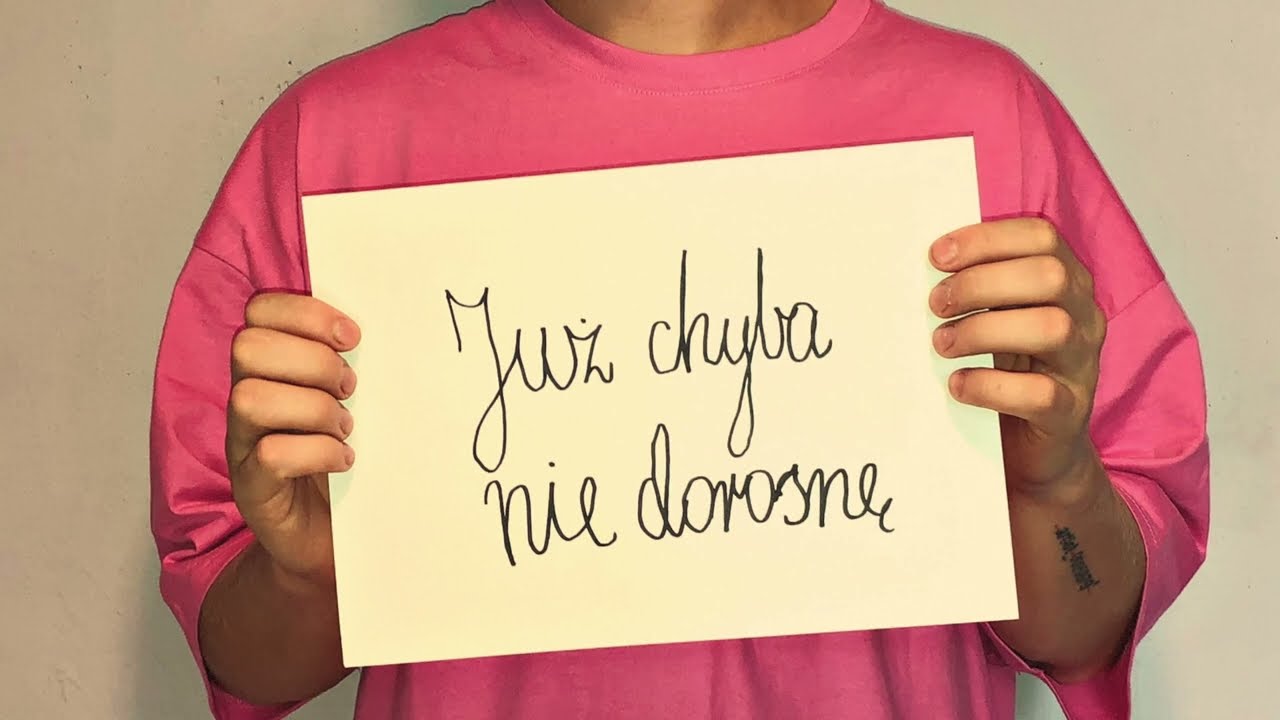 Już chyba
nie dorosnę